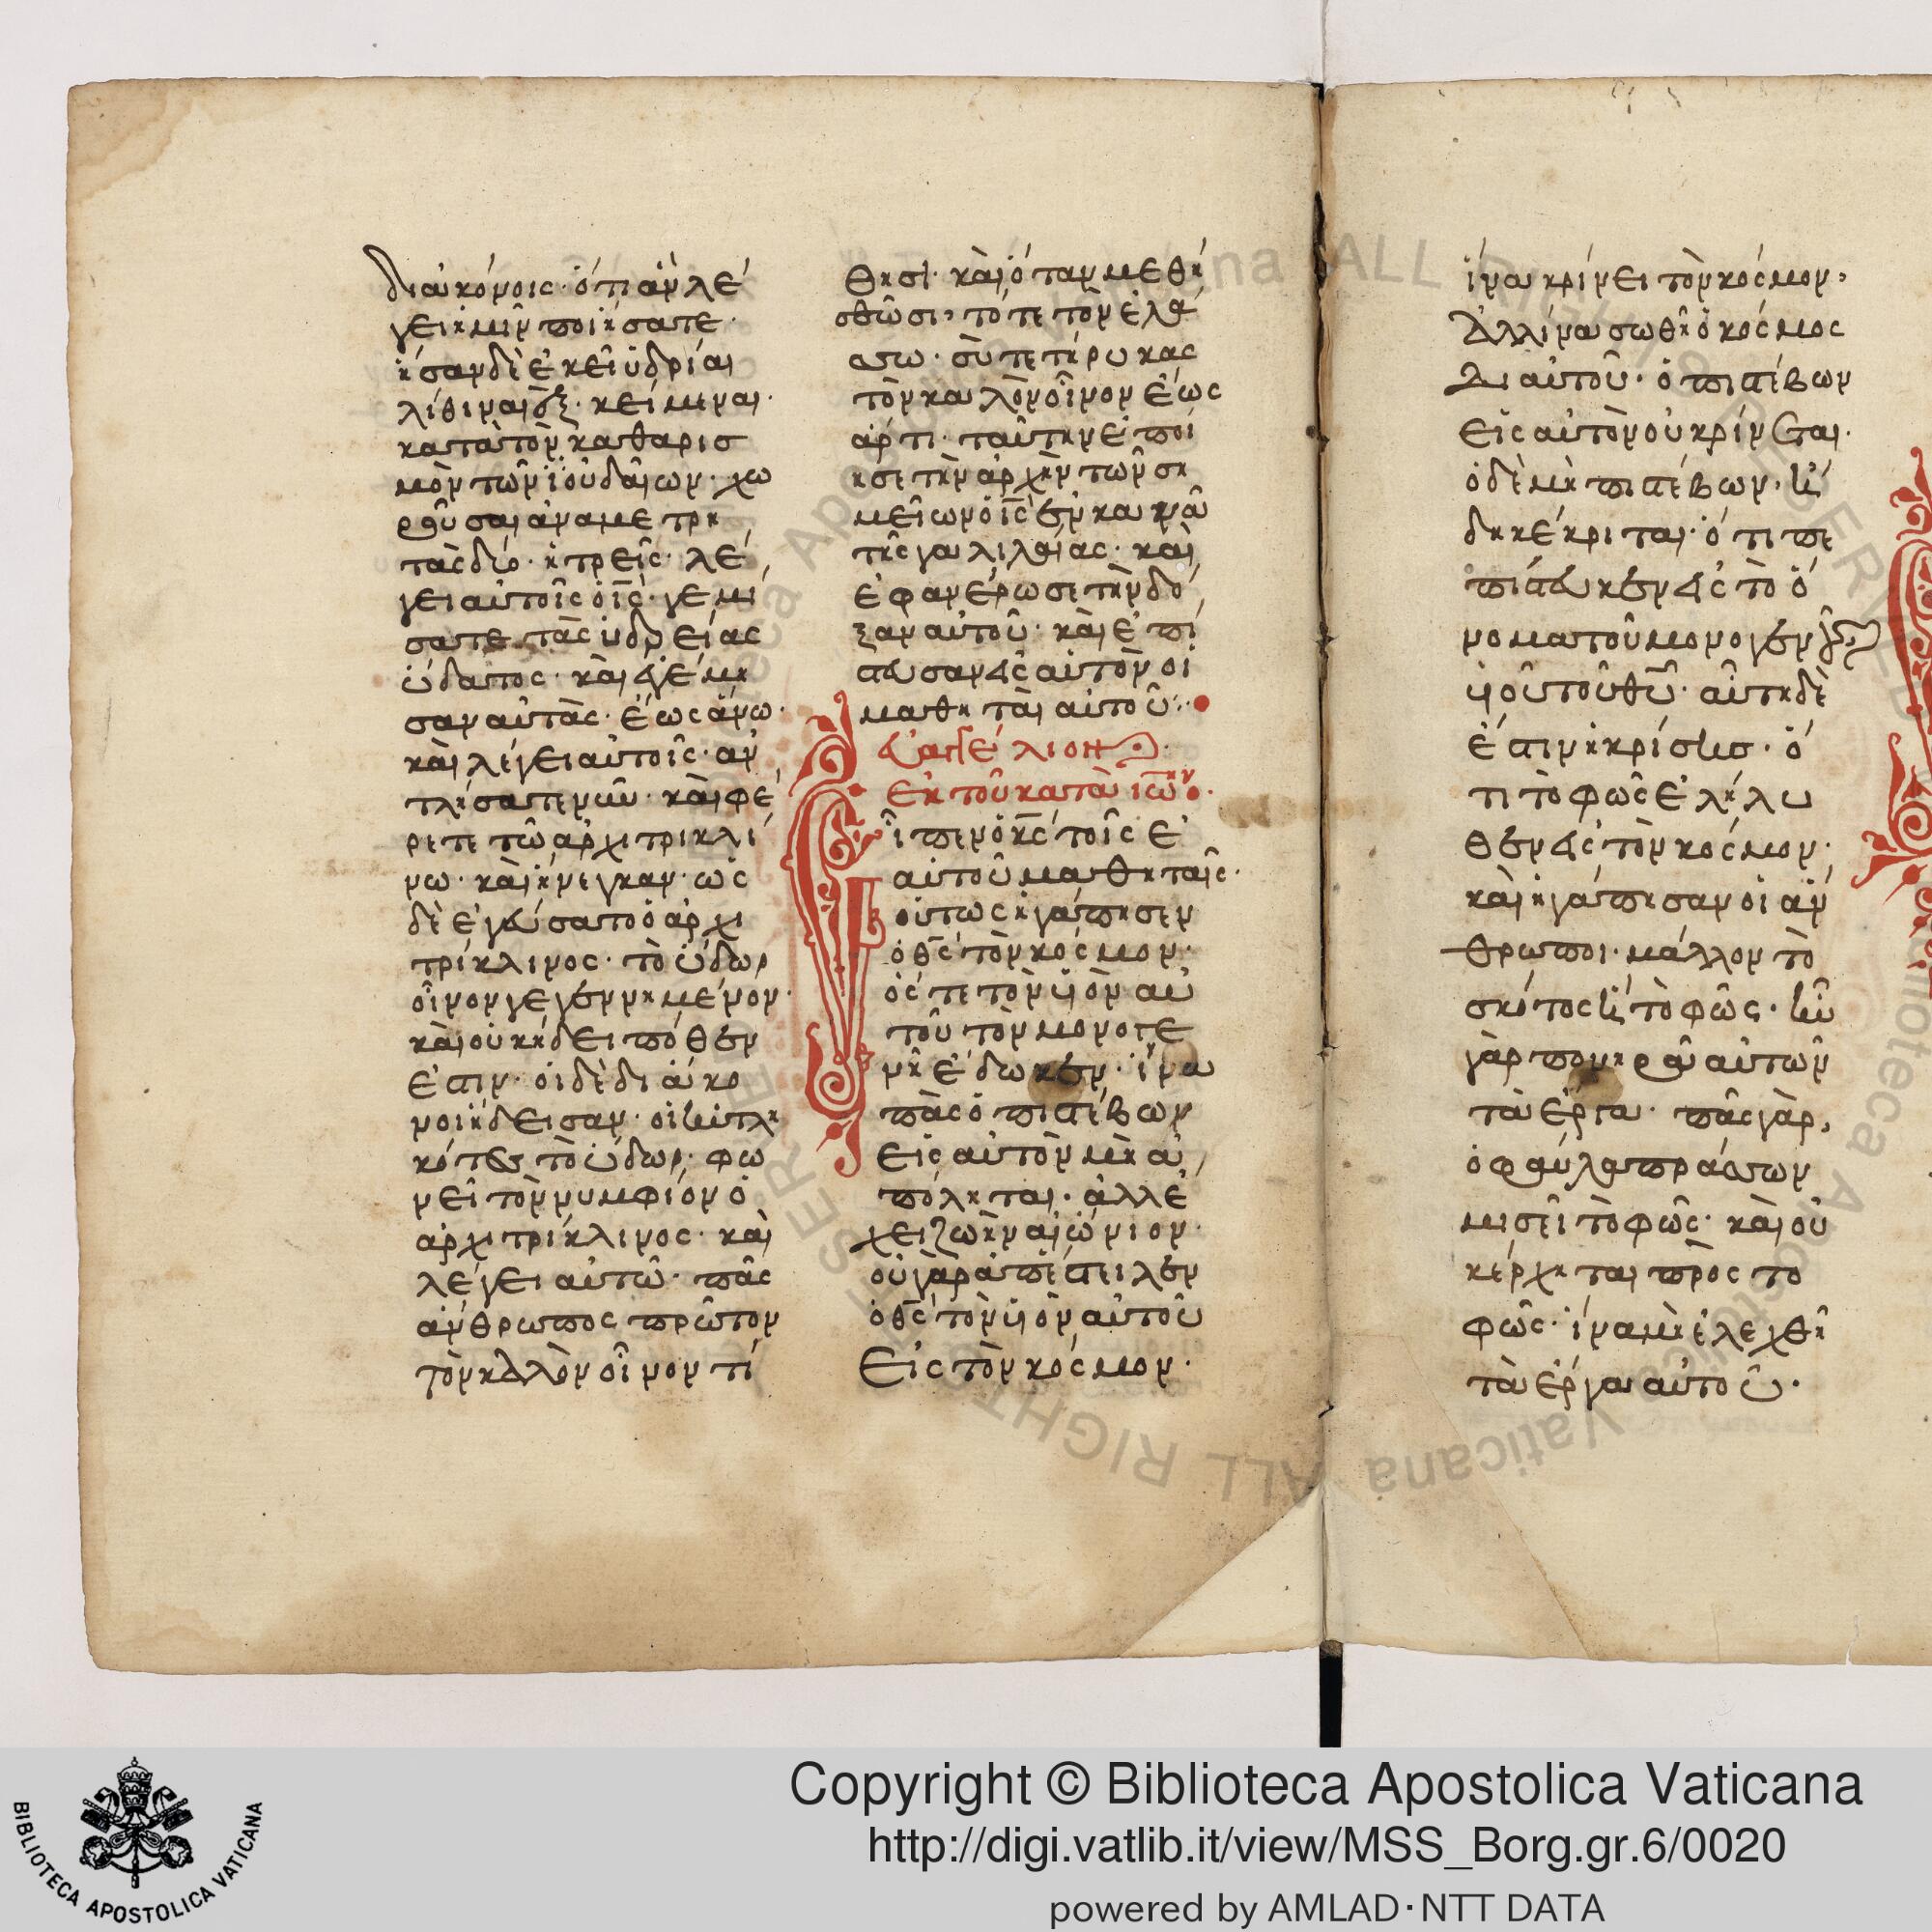 διακόνοις· ὅτι ἀν λέ
γει ἡμῖν ποιήσατε·
ἦσαν δὲ ἐκεῖ ὑδρίαι
λίθιναι ἓξ· κείμεναι·
κατὰ τὸν καθαρισ
μὸν τῶν ϊουδαίων· χω
ροῦσαι ἀναμετρη
τὰς δύο· ἢ τρεῖς· λέ
γει αὐτοῖς ὁ ις· γεμί
σατε τὰς ὑδρείας
ὕδατος· καὶ ἐγέμη
σαν αὐτὰς· ἕως ἄνω·
καὶ λέγει αὐτοῖς· ἀν
τλήσατε νῦν· καὶ φέ
ρετε τῶ ἀρχιτρικλί
νω· καὶ ἤνεγκαν· ὡς
δὲ ἐγεύσατο ὁ ἀρχι
τρίκλινος· τὸ ὕδωρ
οἶνον γεγενημένον·
καὶ οὐκ ἤδει πόθεν
ἐστιν· οἱ δὲ διάκο
νοι ἤδεισαν· οἱ ἠντλη
κότες τὸ ὕδωρ· φω
νεῖ τὸν νυμφίον ὁ
ἀρχιτρίκλινος· καὶ
λέγει αὐτῶ· πᾶς
ἄνθρωπος πρῶτον
τὸν καλὸν οἶνον τί
θησι· καὶ ὅταν μεθη
σθῶσι, τότε τὸν ἐλά
σσω· σὺ τετήρυκας
τὸν καλὸν οἶνον ἕως
ἄρτι· ταύτην ἐποί
ησε τὴν ἀρχὴν τῶν ση
μείων ὁ ις ἐν κανᾶ
τῆς γαλιλαίας· καὶ
ἐφανέρωσε τὴν δό
ξαν αὐτοῦ· καὶ ἐπί
στευσαν εἰς αὐτὸν οἱ
μαθηταὶ αὐτοῦ·
εὐαγγέλιον
ἐκ τοῦ κατὰ ιω
εἶπεν ὁ κς τοῖς ἑ
αυτοῦ μαθηταῖς·
οὕτως ἠγάπησεν
ὁ θς τὸν κόσμον·
ὅς τε τὸν υἱὸν αὐ
τοῦ τὸν μονογε
νῆ ἔδωκεν· ἵνα
πᾶς ὁ πιστεύων
εἰς αὐτὸν μὴ ἀ
πόληται· ἀλλ' ἔ
χει ζωὴν αἰώνιον·
οὐ γὰρ ἀπέστειλεν
ὁ θς τὸν υἱὸν αὐτοῦ
εἰς τὸν κόσμον·
ἵνα κρίνει τὸν κόσμον,
ἀλλ' ἵνα σωθῆ ὁ κόσμος
δι αὐτοῦ· ὁ πιστεύων
εἰς αὐτὸν οὐ κρίνεται·
ὁ δὲ μὴ πιστεύων· ἤ
δη κέκριται· ὅτι πε
πίστευκεν εἰς τὸ ὄ
νομα τοῦ μονογενοῦς
υἱοῦ τοῦ θυ· αὕτη δὲ
ἐστιν ἡ κρίσις· ὅ
τι τὸ φῶς ἐλήλυ
θεν εἰς τὸν κόσμον·
καὶ ἠγάπησαν οἱ ἄν
θρωποι· μᾶλλον τὸ
σκότος ἢ τὸ φῶς· ἦν
γὰρ πονηρὰ αὐτῶν
τὰ ἔργα· πᾶς γὰρ,
ὁ φαύλα πράσσων
μισεῖ τὸ φῶς· καὶ οὐ
κέρχηται πρὸς το
φῶς· ἵνα μὴ ἐλεχθῆ
τὰ ἔργα αὐτοῦ·
Copyright © Biblioteca Apostolica Vaticana
http://digi.vatlib.it/view/MSS_Borg.gr.6/0020
powered by AMLAD·NTT DATA
BIBLIOTECA APOSTOLICA VATICANA